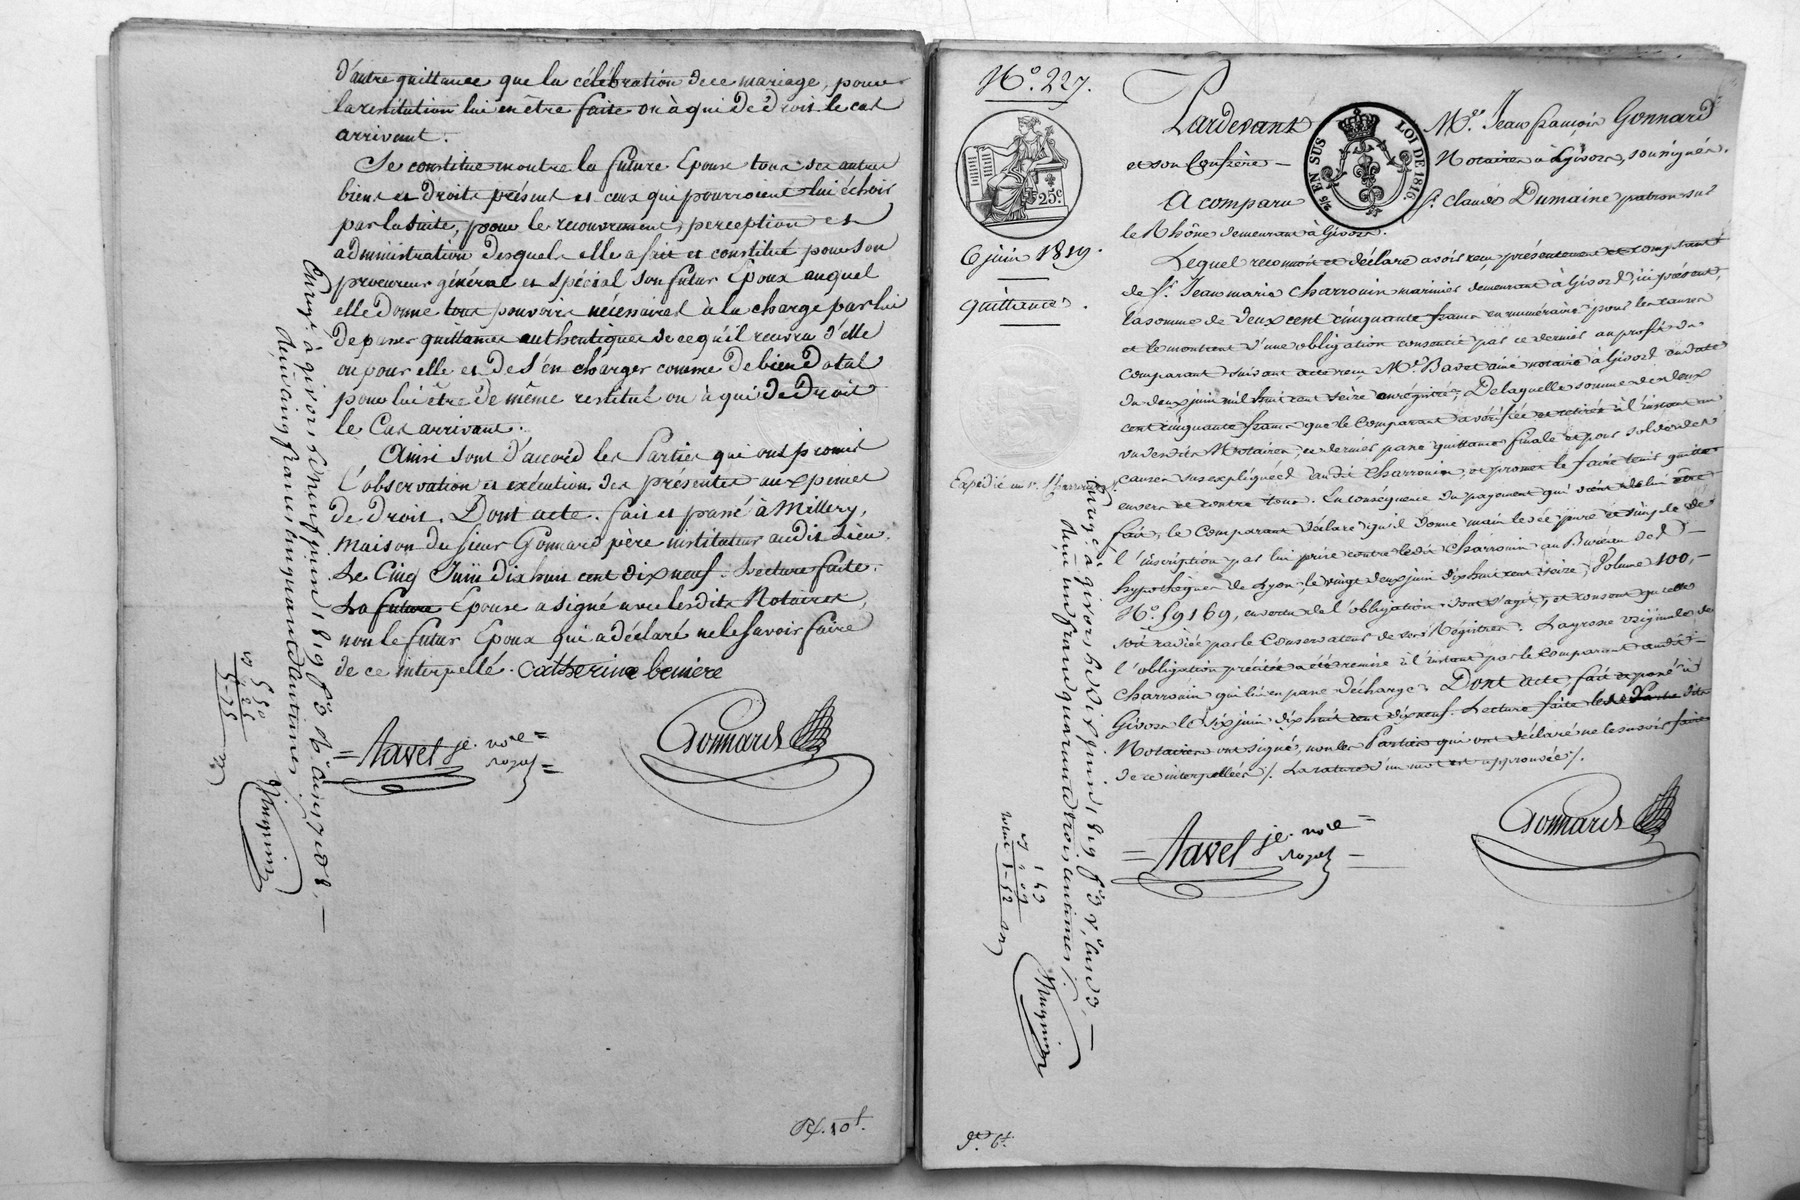 d'autre quittance que la célébration de ce mariage, pour
la restitution lui en être faite ou à qui de droit le cas
arrivant.
Se constitue en outre la future Epouse tous ses autres
biens et droits présent et ceux qui pourroient lui échoir
par la suite, pour le recouvrement, perception et
administration desquels elle a fait et constitué pour son
procureur général et spécial son futur Epoux auquel
elle donne tous pouvoirs nécessaires à la charge par lui
de passer quittances authentiques de ce qu'il recevra d'elle
ou pour elle et de s'en charger comme de bien Dotal
pour lui être de même restitué ou à qui de Droit
le Cas arrivant.
Ainsi sont d'accord les Parties qui ont promis
l'observation et exécution des présentes aux peines
de droit. Dont acte. fait et passé à Millery,
maison du sieur Gonnard père instituteur audit Lieu.
Le Cinq Juin dix huit cent dix neuf. Lecture faite.
La future Epouse a signé avec lesdits Notaires,
non le futur Epoux qui a déclaré ne le savoir faire
de ce interpellé. Catherine beniere
= Navel je. nore =
royal =
Gonnard
Enregé à givors le neuf juin 1819 fo
cinq francs cinquante centimes
5 50
55
Rf. 10f.
No. 227.
25c.
6 juin 1819.
Quittance
Expédié au Sr. Charrouin
Pardevant Me. Jean françois Gonnard
EN SUS LOI DE 1816
et son Confrère — Notaires à Givors, soussignés.
A comparu Sr. claude Dumaine patron sur
le Rhône demeurant à Givors.
Lequel reconnoit et déclare avoir reçu présentement et comptant
de Sr. Jean marie Charrouin marinier demeurant à Givors, ici présent,
la somme de deux cent cinquante francs en numéraire pour les causes
et le montant d'une obligation consentie par ce dernier au profit du
comparant suivant acte reçu Me. Bavet ainé notaire à Givors en date
du deux juin mil huit cent seize enrégistré; De laquelle somme de deux
cent cinquante francs que le Comparant a vérifiée et retirée à l'instant au
vu desdits Notaires, ce dernier passe quittance finale et pour solde des
causes sus expliquées audit Charrouin, et promet le faire tenir quitte
envers et contre tous. En conséquence du payement qui vient de lui être
fait, le comparant déclare qu'il donne main levée pure et simple de
l'inscription par lui prise contre ledit Charrouin au Bureau des
hypothèques de Lyon, le vingt deux juin dix huit cent seize, Volume 100, —
No. 59169, en vertu de l'obligation dont s'agit, et consent qu'elle
soit radiée par le Conservateur de ses Régistres. La grosse originale de
l'obligation précitée a été remise à l'instant par le comparant audit —
Charrouin qui lui en passe décharge. Dont acte, fait et passé à
Givors le six juin dix huit cent dix neuf. Lecture faite lesdits
Notaires ont signé, non les Parties qui ont déclaré ne le savoir faire
de ce interpellées /. La rature d'un mot est approuvée /.
= Navel je. nore =
royal —
Gonnard
Enregé à givors le dix juin 1819
un franc quarante trois centimes
1 43